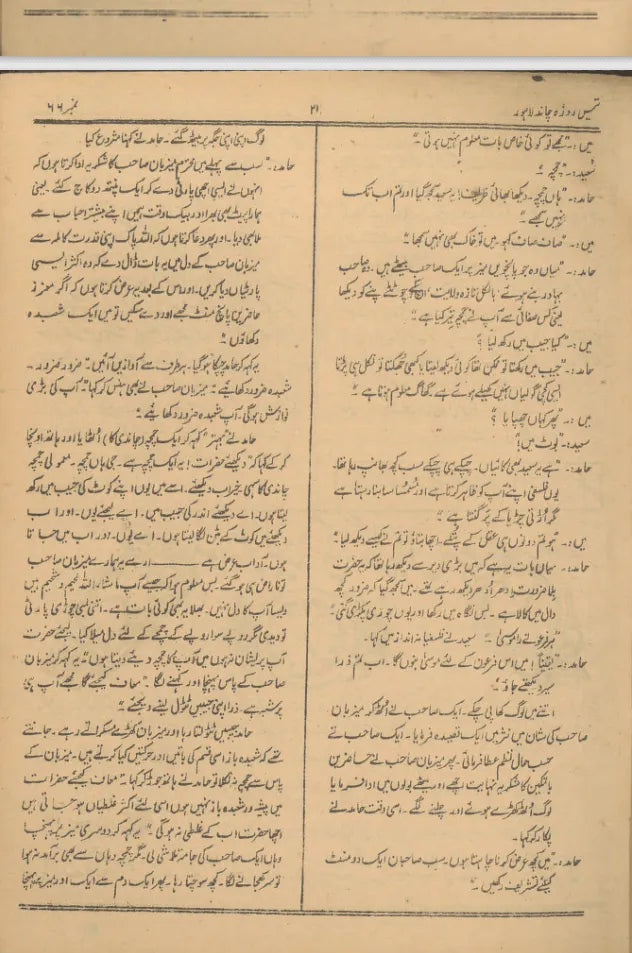 تیس روزہ چاند لاہور
۲۱
نمبر ۶۶
میں:۔ "مجھے تو کوئی خاص بات معلوم نہیں ہوتی۔"
سعید:۔ "چمچہ۔"
حامد:۔ "ہاں چمچہ۔ دیکھا بھائی ظریف! یہ سعید سمجھ گیا اور تم اب تک
نہیں سمجھے۔"
میں:۔ "صاف صاف کہو۔ میں تو خاک بھی نہیں سمجھا۔"
حامد:۔ "میاں وہ جو پانچویں میز پر ایک صاحب بیٹھے ہیں۔ صاحب
بہادر بنے ہوئے بالکل تازہ ولایت پنے کو دیکھا
کس صفائی سے آپ نے چمچہ تیر کیا ہے۔"
میں:۔ "کیا جیب میں رکھ لیا؟"
حامد:۔ "جیب میں رکھتا تو ممکن تھا کوئی دیکھ لیتا یا کبھی جھکتا تو نکل ہی پڑتا
ایسی کچی گولیاں نہیں کھیلے ہوئے ہے۔ گھاگ معلوم ہوتا ہے۔"
میں:۔ "پھر کہاں چھپایا؟"
سعید:۔ "بوٹ میں!"
حامد:۔ "ہے یہ سعید بھی کائیاں۔ چپکے ہی چپکے سب کچھ بھانپ رہا تھا۔
یوں فلسفی اپنے آپ کو ظاہر کرتا ہے اور سا بنا رہتا ہے
مگر اڑتی چڑیا کے پر گنتا ہے۔"
میں:۔ "ہو تم دونوں ہی عقل کے پتلے۔ اچھا بتاؤ تو تم نے کیسے دیکھ لیا؟"
حامد:۔ "میاں بات یہ ہے کہ میں بڑی دیر سے دیکھ رہا تھا کہ یہ حضرت
بلا ضرورت ادھر ادھر دیکھ رہے تھے۔ میں سمجھ گیا کہ ضرور کچھ
دال میں کالا ہے۔ بس نگاہ میں رکھا اور یوں چوری پکڑی گئی۔"
"ہر فرعونے را موسیٰ۔" سعید نے فلسفیانہ انداز میں کہا۔
حامد:۔ "یقیناً! میں اس فرعون کے لئے موسیٰ بنوں گا۔ اب تم ذرا
سیر دیکھتے جاؤ۔"
اتنے میں لوگ کھا پی چکے۔ ایک صاحب نے اٹھ کر میزبان
صاحب کی شان میں نثر میں ایک قصیدہ فرمایا۔ ایک صاحب نے
حسب حال نظم عطا فرمائی۔ پھر میزبان صاحب نے حاضرین
کا شکریہ نہایت اچھے اور میٹھے بولوں میں ادا فرمایا
لوگ اٹھ کھڑے ہوئے اور چلنے لگے۔ اسی وقت حامد نے
پکار کر کہا۔
حامد:۔ "میں کچھ عرض کرنا چاہتا ہوں۔ سب صاحبان ایک دو منٹ
کیلئے تشریف رکھیں۔"
لوگ اپنی اپنی جگہ پر بیٹھ گئے۔ حامد نے کہنا شروع کیا
حامد:۔ "سب سے پہلے میں محترم میزبان صاحب کا شکریہ ادا کرتا ہوں کہ
انہوں نے ایسی اچھی پارٹی دے کے ایک پنتھ دو کاج کئے۔ یعنی
ہمارا پیٹ بھی بھرا اور بیک وقت ہمیں اپنے بیشتر احباب سے
ملا بھی دیا۔ اور پھر دعا کرتا ہوں کہ اللہ پاک اپنی قدرت کاملہ سے
میزبان صاحب کے دل میں یہ بات ڈال دے کہ وہ اکثر ایسی
پارٹیاں دیا کریں۔ اور اس کے بعد یہ عرض کرتا ہوں کہ اگر معزز
حاضرین پانچ منٹ مجھے اور دے سکیں تو میں ایک شعبدہ
دکھاؤں۔"
یہ کہہ کر حامد چپکا ہو گیا۔ ہر طرف سے آوازیں آئیں۔ "ضرور ضرور۔
شعبدہ ضرور دکھائیے۔" میزبان صاحب نے بھی ہنس کر کہا "آپ کی بڑی
نوازش ہوگی۔ آپ شعبدہ ضرور دکھائیے۔"
حامد نے "بہتر" کہہ کر ایک چمچہ (چاندی کا) اٹھایا اور ہاتھ اونچا
کر کے کہا کہ "دیکھئے حضرات! یہ ایک چمچہ ہے۔ جی ہاں چمچہ۔ معمولی چمچہ
چاندی کا سہی خیر اب دیکھئے۔ اسے میں یوں اپنے کوٹ کی جیب میں رکھ
لیتا ہوں۔ اے دیکھئے اندر کی جیب میں۔ اے لیجئے یوں۔ اور اب
دیکھئے میں کوٹ کے بٹن لگا لیتا ہوں۔ اے یوں۔ اور اب میں جاتا
ہوں۔ آداب عرض ہے ــــــــ ارے یہ ہمارے میزبان صاحب
تو ناراض ہی ہو گئے۔ بس معلوم ہوا کہ جیسے آپ ماشاء اللہ لحیم و شحیم ہیں
ویسا آپ کا دل نہیں۔ بھلا یہ بھی کوئی بات ہے۔ اتنی لمبی چوڑی پارٹی
تو دیدی مگر دو پے سوا روپے کے چمچے کے لئے دل میلا کیا۔ لیجئے حضرت
آپ پریشان نہ ہوں میں آپ کا چمچہ دیئے دیتا ہوں" یہ کہہ کر میزبان
صاحب کے پاس پہنچا اور کہنے لگا۔ "معاف کیجئے گا مجھے آپ ہی
پر شبہ ہے۔ ذرا اپنی جیبیں ٹٹول لینے دیجئے۔"
حامد جیبیں ٹٹولتا رہا اور میزبان کھڑے مسکراتے رہے۔ جانتے
تھے کہ شعبدہ باز اسی قسم کی باتیں اور حرکتیں کیا کرتے ہیں۔ میزبان کے
پاس سے چمچہ نہ نکلا تو حامد نے ہاتھ جوڑ کر کہا۔ "معاف کیجئے حضرات
میں پیشہ ور شعبدہ باز نہیں ہوں اسی لئے اکثر غلطیاں ہو جاتی ہیں
اچھا حضرت اب کے غلطی نہ ہوگی۔" یہ کہہ کر دوسری میز پر پہنچا
وہاں ایک صاحب کی جامہ تلاشی لی۔ مگر چمچہ وہاں سے بھی برآمد نہ ہوا
تو سر کھجانے لگا۔ کچھ سوچتا رہا۔ پھر ایک دم سے ایک اور میز پر پہنچا